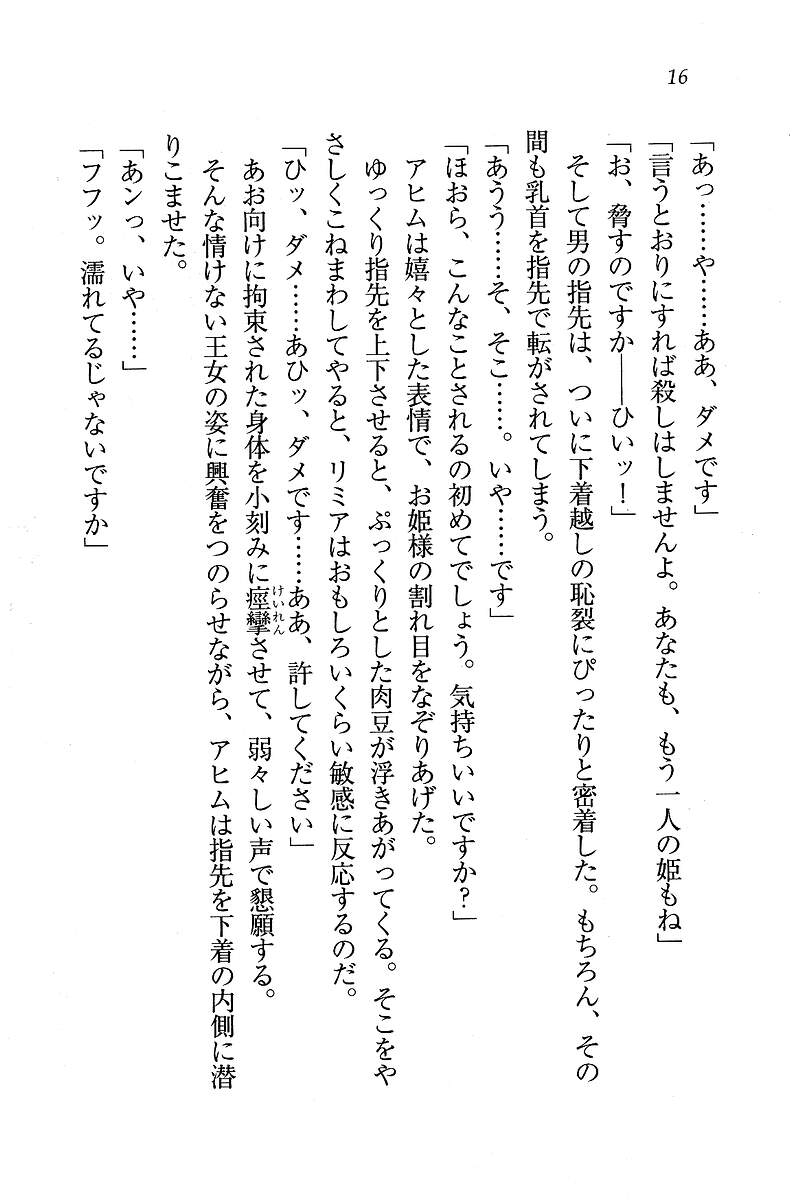 16
「あっ……や……ああ、ダメです」
「言うとおりにすれば殺しはしませんよ。あなたも、もう一人の姫もね」
「お、脅すのですか――ひいッ！」
　そして男の指先は、ついに下着越しの恥裂にぴったりと密着した。もちろん、その
間も乳首を指先で転がされてしまう。
「あうう……そ、そこ……。いや……です」
「ほおら、こんなことされるの初めてでしょう。気持ちいいですか？」
　アヒムは嬉々とした表情で、お姫様の割れ目をなぞりあげた。
　ゆっくり指先を上下させると、ぷっくりとした肉豆が浮きあがってくる。そこをや
さしくこねまわしてやると、リミアはおもしろいくらい敏感に反応するのだ。
「ひッ、ダメ……あひッ、ダメです……ああ、許してください」
　あお向けに拘束された身体を小刻みに痙攣けいれんさせて、弱々しい声で懇願する。
　そんな情けない王女の姿に興奮をつのらせながら、アヒムは指先を下着の内側に潜
りこませた。
「あンっ、いや……」
「フフッ。濡れてるじゃないですか」